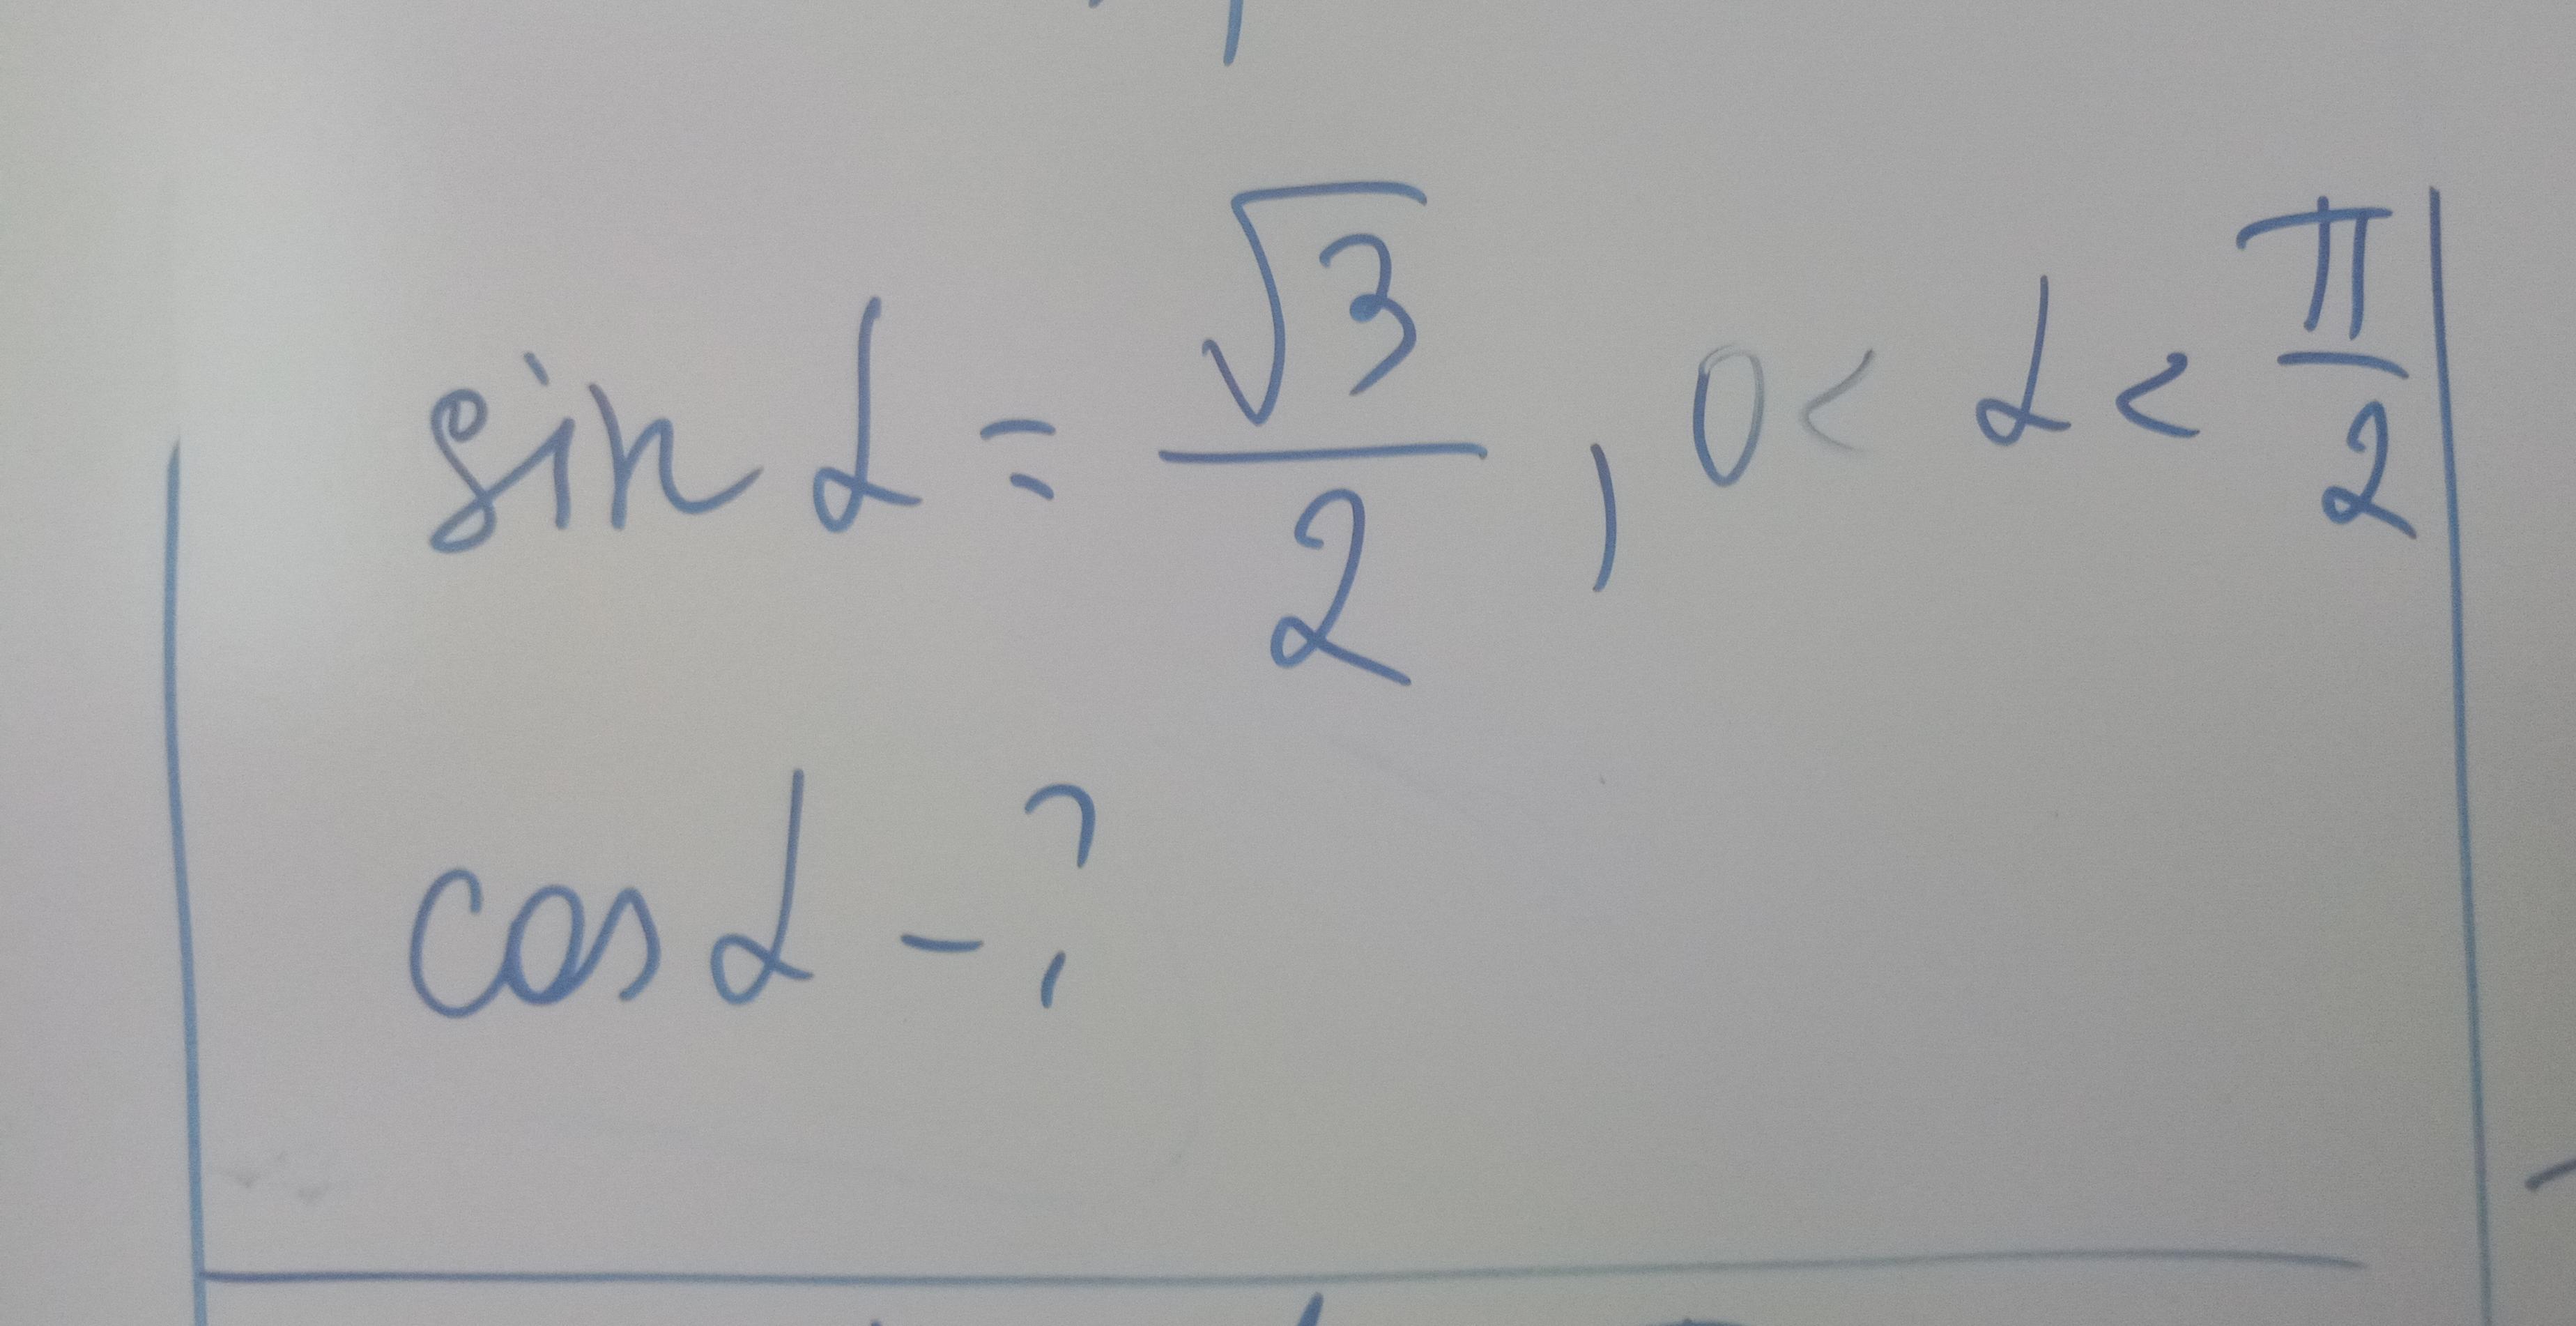 sin α = √3/2 , 0 < α < π/2
cos α - ?